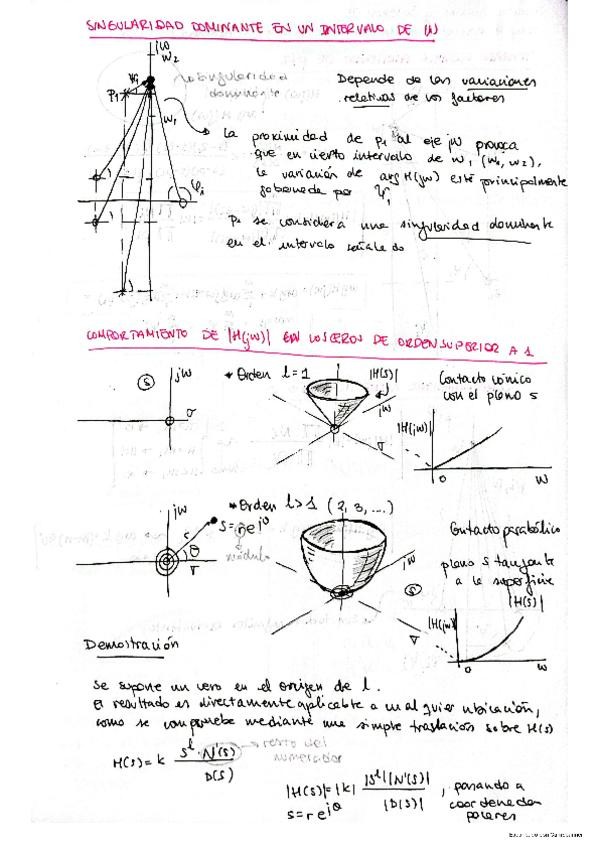 SINGULARIDAD DOMINANTE EN UN INTERVALO DE W
jw
w2
ψ1
singularidad
dominante
P1
w1
φi
Depende de las variaciones
relativas de los factores
La proximidad de p1 al eje jw provoca
que en cierto intervalo de w, (w1, w2),
la variación de arg H(jw) esté principalmente
gobernada por ψ1
P1 se considera una singularidad dominante
en el intervalo señalado
COMPORTAMIENTO DE |H(jw)| EN LOS CEROS DE ORDEN SUPERIOR A 1
s
jw
σ
* Orden l=1
|H(s)|
jw
σ
Contacto cónico
con el plano s
|H(jw)|
0
w
jw
r
θ
σ
s=re^jθ
módulo
* Orden l>1 (2, 3, ....)
jw
s
σ
Contacto parabólico
plano s tangente
a la superficie
|H(s)|
|H(jw)|
0
w
Demostración
Se supone un cero en el origen de l.
El resultado es directamente aplicable a cualquier ubicación,
como se comprueba mediante una simple traslación sobre H(s)
H(s)= k s^l · N'(s) / D(s)
resto del
numerador
|H(s)|=|k| |s^l||N'(s)| / |D(s)| , pasando a
coordenadas
polares
s=re^jθ